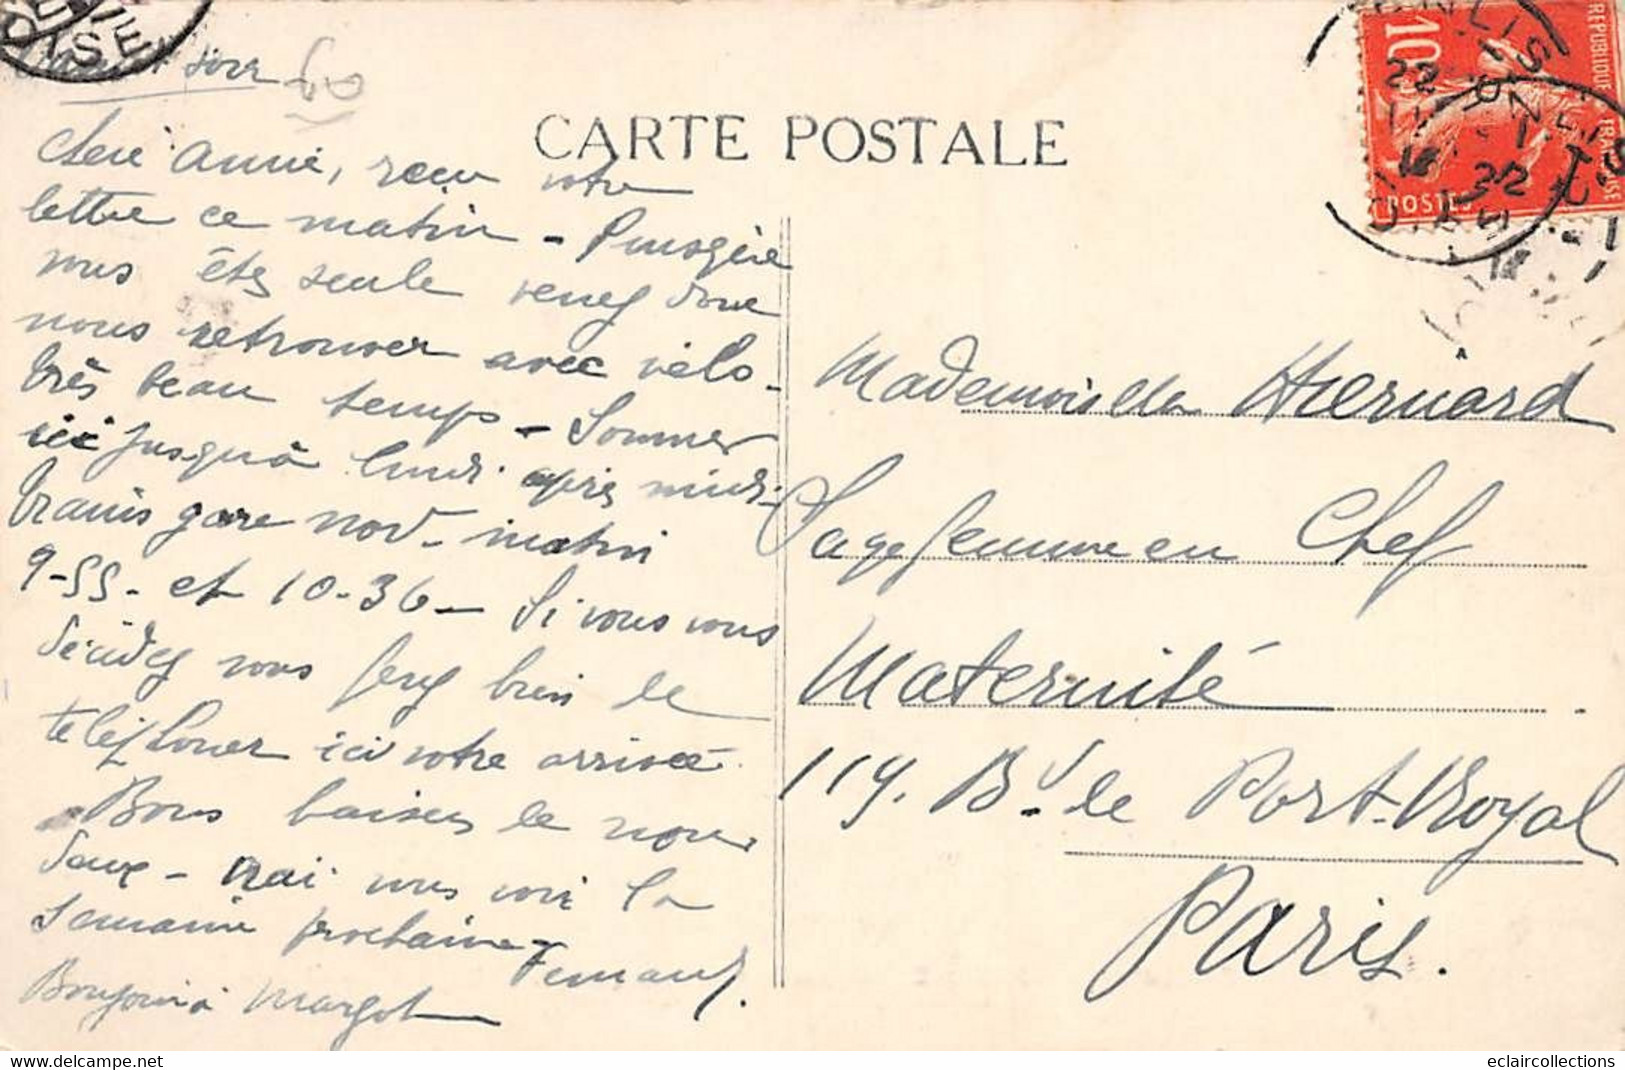 OISE
soir
CARTE POSTALE
10
REPUBLIQUE FRANCAISE
POSTES
SENLIS
22
OISE
Chere Annie, reçu votre
lettre ce matin - Puisque
vous êtes seule venez donc
nous retrouver avec vélo -
très beau temps - Sommes
ici jusqu'à lundi après midi -
trains gare nord - matin
9-55 - et 10-36 - Si vous vous
décidez vous ferez bien de
telephoner ici votre arrivée -
Bons baisers de nous
deux - irai vous voir la
semaine prochaine -
Fernand.
Bonjour à Margot
Mademoiselle Hiernard
Sage femme en Chef
Maternité
119. Bd de Port-Royal
Paris.
eclaircollections